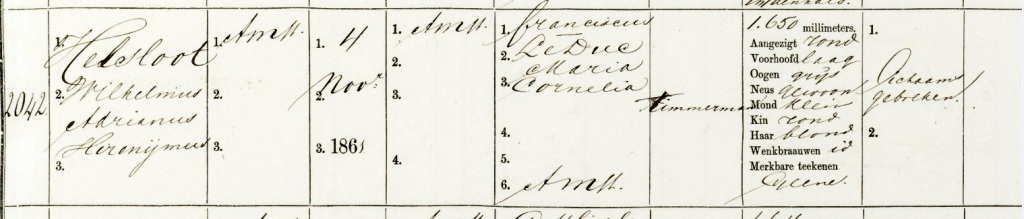 2042
1. Helsloot
2. Wilhelmus
Adrianus
Hieronijmus
3.
1. Amst.
2.
3.
1. 4
2. Novr.
3. 1861
1. Amst.
2.
3.
4.
1. Franciscus
2. LeDuc
Maria
3. Cornelia
4.
5.
6. Amst.
timmerman
1.650 millimeters.
Aangezigt rond
Voorhoofd laag
Oogen grijs
Neus gewoon
Mond klein
Kin rond
Haar blond
Wenkbraauwen id
Merkbare teekenen
Geene.
1.
Lichaams
gebreken.
2.